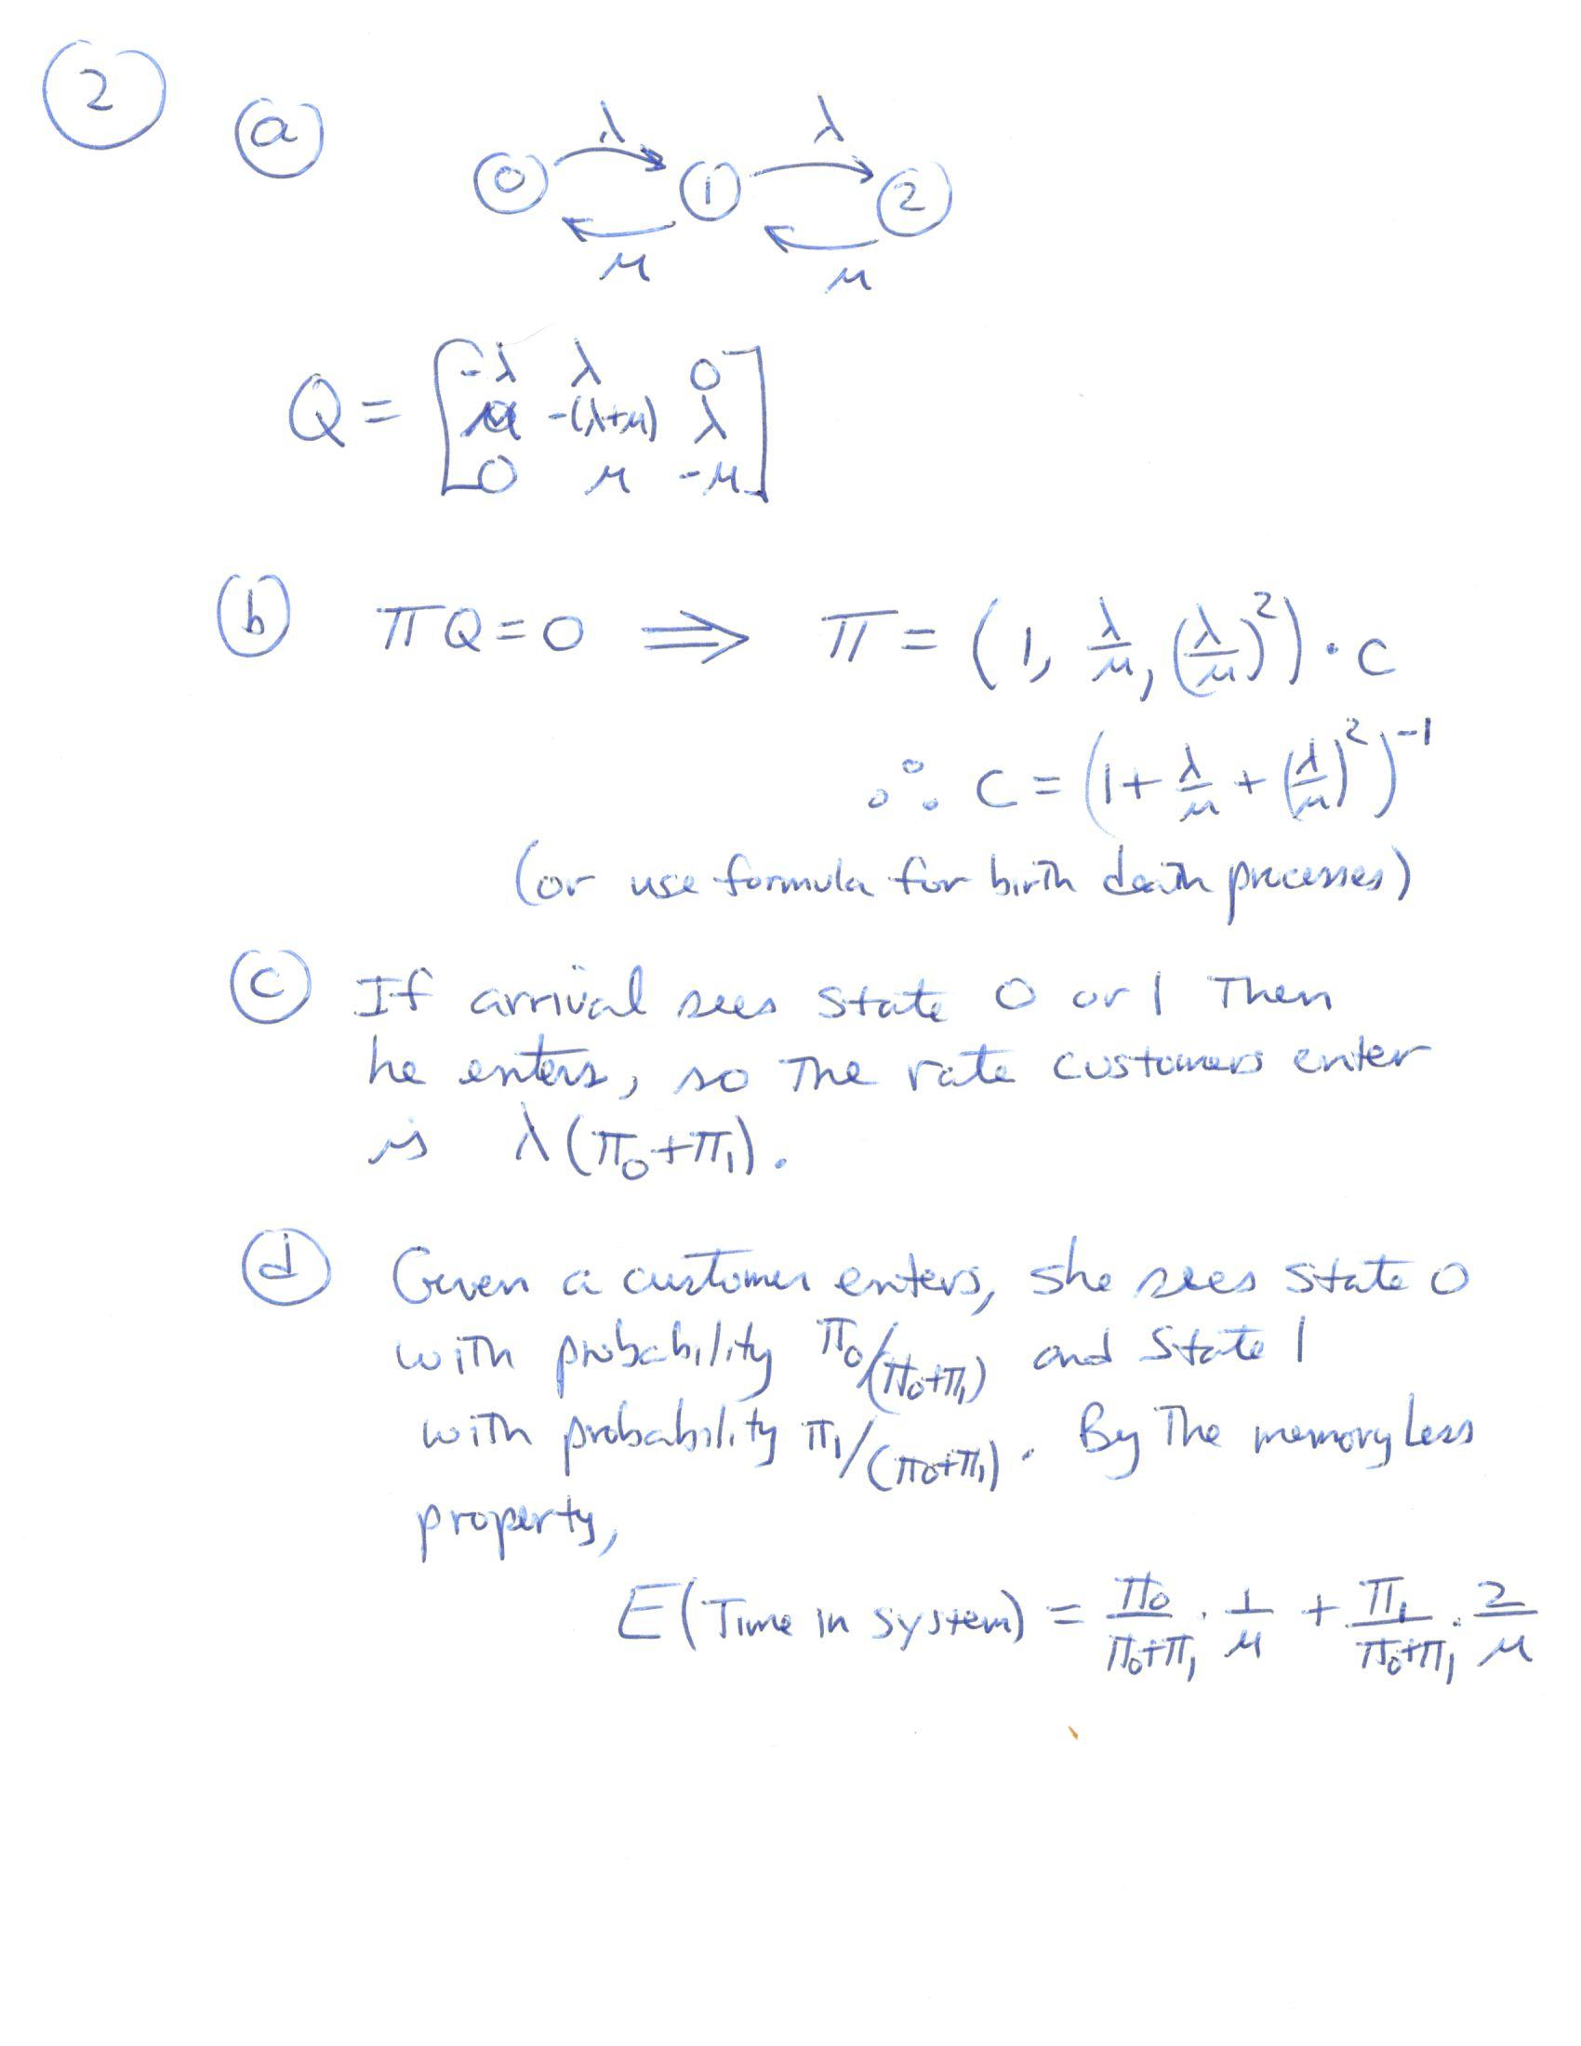 2
a
λ λ
0 1 2
μ μ
Q = [ -λ λ 0
μ -(λ+μ) λ
0 μ -μ ]
b πQ=0 ⟹ π = (1, λ/μ, (λ/μ)²)·c
∴ c = (1 + λ/μ + (λ/μ)²)⁻¹
(or use formula for birth death processes)
c If arrival sees state 0 or 1 Then
he enters, so The rate customers enter
is λ(π₀+π₁).
d Given a customer enters, she sees state 0
with probability π₀/(π₀+π₁) and state 1
with probability π₁/(π₀+π₁). By The memoryless
property,
E(Time in system) = π₀/(π₀+π₁) · 1/μ + π₁/(π₀+π₁) · 2/μ